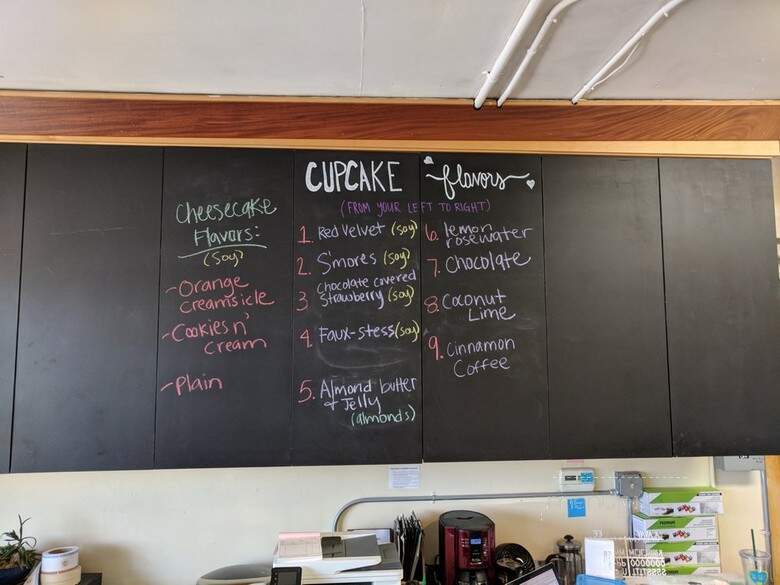 Cheesecake
Flavors:
(soy)
-Orange
Creamsicle
-Cookies n'
Cream
-Plain
CUPCAKE flavors
(FROM YOUR LEFT TO RIGHT)
1. Red Velvet (soy)
2. S'mores (soy)
3. Chocolate covered
Strawberry (soy)
4. Faux-stess (soy)
5. Almond butter
+ Jelly
(almonds)
6. lemon
rosewater
7. Chocolate
8. Coconut
Lime
9. Cinnamon
Coffee